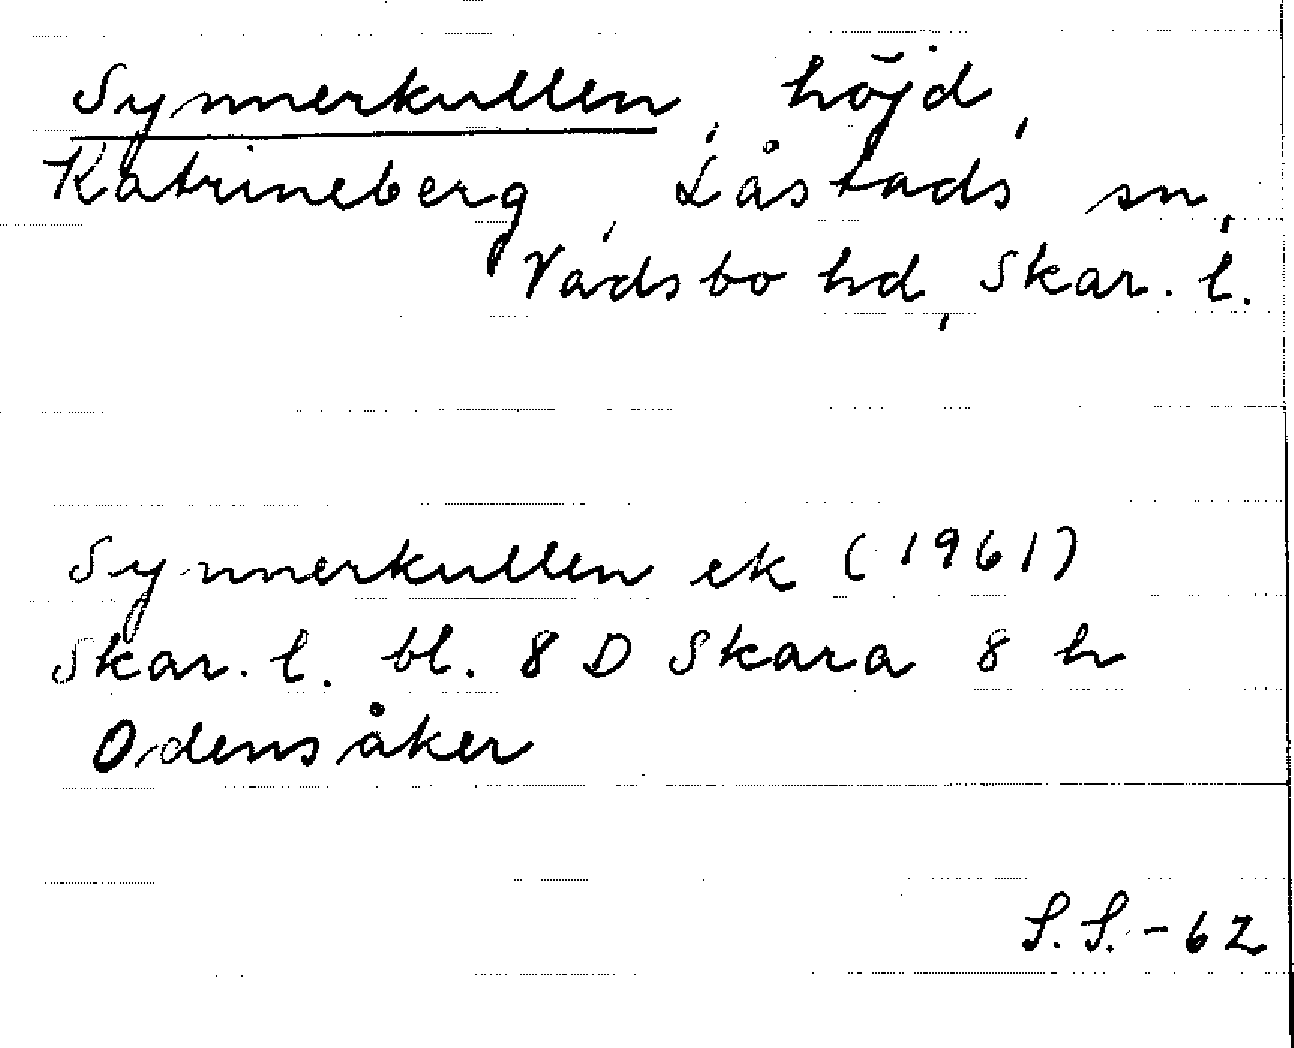 Synnerkullen, höjd,
Katrineberg, Låstads sn,
Vadsbo hd, Skar. l.
Synnerkullen ek (1961)
Skar. l. bl. 8 D Skara 8 h
Odensåker
S.S. - 62